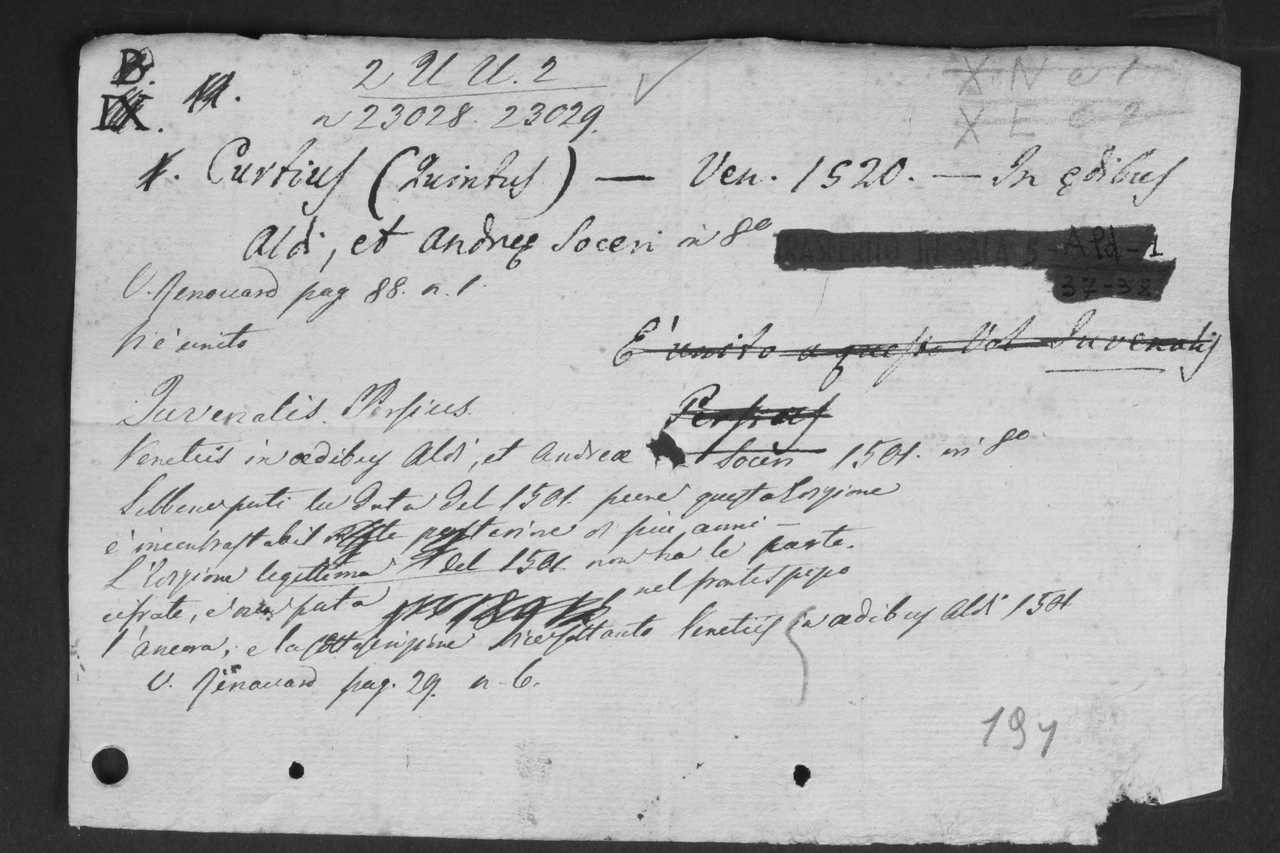 B.
IX.
2 U U. 2
n 23028. 23029.
X N e 1
X L e 2
1. Curtius (Quintus) — Ven. 1520. — In ędibus
Aldi, et Andreę Soceri in 8º
TRASFERITO IN SALA 5 - Ald - 1
37-38
V. Renouard pag 88. n. 1.
Vi è unito
E' unito a questo Vol Juvenalis
Persius
Juvenalis. Persius.
Venetiis in aedibus Aldi, et Andreae Soceri 1501. in 8º
Sebbene porti la data del 1501. pure questa edizione
è incontrastabil posteriore di più anni —
L'edizione legittima del 1501. non ha le carte
cifrate, e non porta nel frontespizio
l'ancora, e la soscrizione dice soltanto Venetiis in aedibus Aldi 1501
V. Renouard pag. 29. n. 6.
197